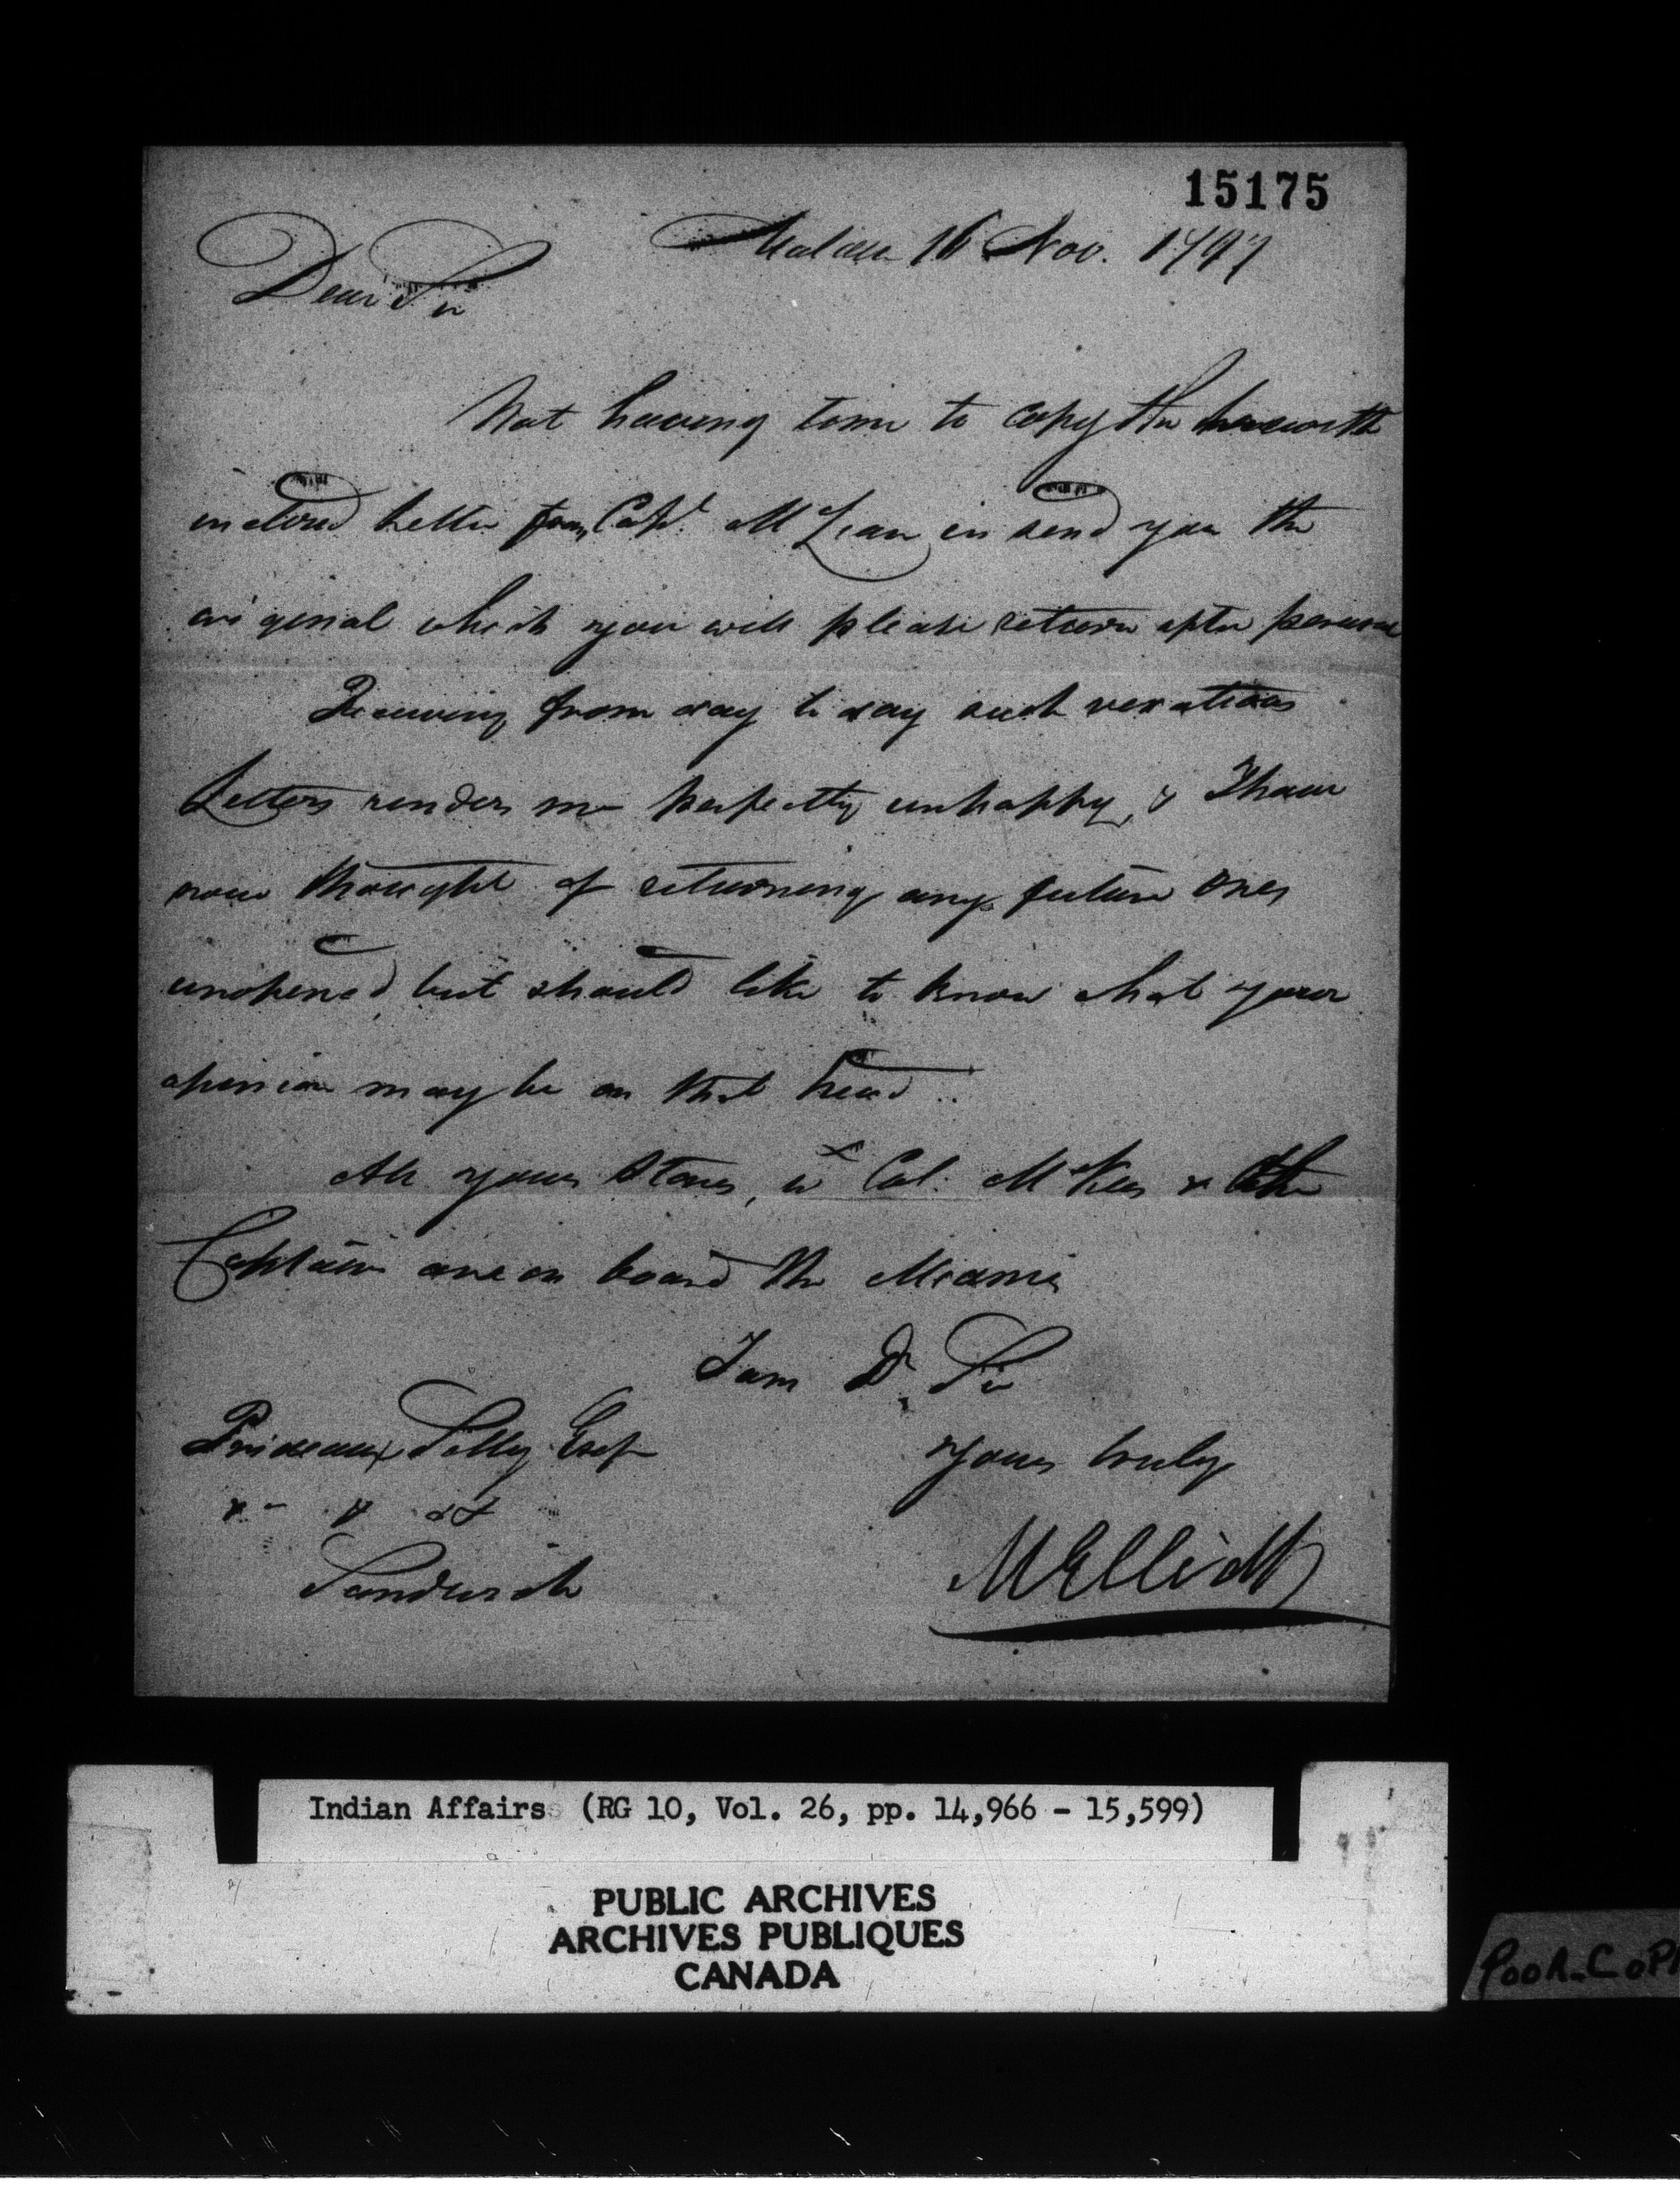 15175
Malden 16 Nov. 1797
Dear Sir
Not having time to copy the herewith
inclosed Letter from Capt. McLean in send you the
original which you will please return after perusal
Receiving from day to day such vexatious
Letters renders me perfectly unhappy, & I have
now thought of returning any future ones
unopened but should like to know what your
opinion may be on that head..
All your Stores, Col: McKees & the
Captains are on board the Miamis
I am Dr. Sir
Prideaux Selby Esqr
Yours truly
& & &c
Sandwich
M Elliott
Indian Affairs (RG 10, Vol. 26, pp. 14,966 - 15,599)
PUBLIC ARCHIVES
ARCHIVES PUBLIQUES
CANADA
POOR COPY